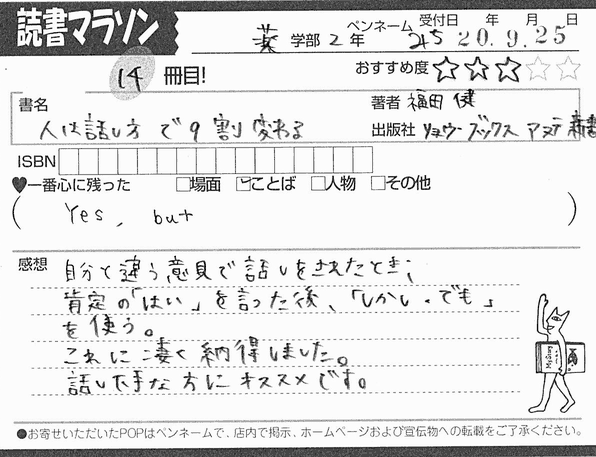 読書マラソン
薬 学部 2 年 ペンネーム みち 受付日 年 月 日
20.9.25
14 冊目! おすすめ度 ★★★☆☆
書名 人は話し方で9割変わる
著者 福田 健
出版社 リュウブックス アステ新書
ISBN
♥一番心に残った □場面 ☑ことば □人物 □その他
( Yes, but )
感想 自分と違う意見で話しをされたとき、
肯定の「はい」を言った後、「しかし・でも」
を使う。
これに凄く納得しました。
話し下手な方にオススメです。
●お寄せいただいたPOPはペンネームで、店内で掲示、ホームページおよび宣伝物への転載をご了承ください。